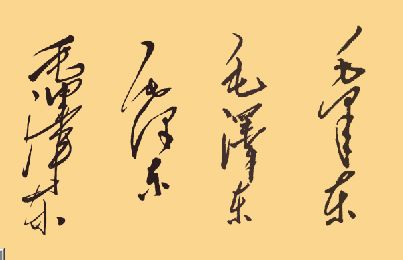 毛泽东
毛泽东
毛泽东
毛泽东